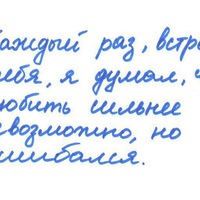 каждый раз, встре
ебя, я думал, ч
юбить сильнее
евозможно, но
шибался.